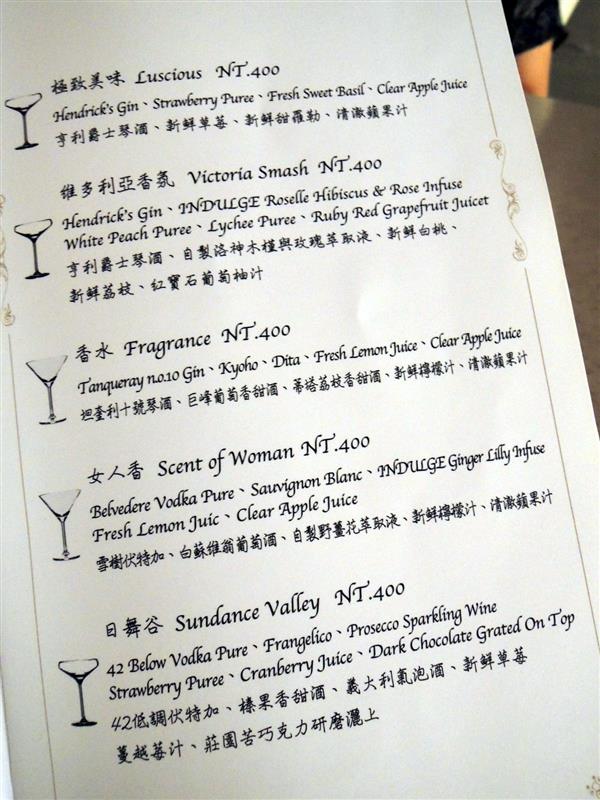 極致美味 Luscious NT.400
Hendrick's Gin、Strawberry Puree、Fresh Sweet Basil、Clear Apple Juice
亨利爵士琴酒、新鮮草莓、新鮮甜羅勒、清澈蘋果汁
維多利亞香氛 Victoria Smash NT.400
Hendrick's Gin、INDULGE Roselle Hibiscus & Rose Infuse
White Peach Puree、Lychee Puree、Ruby Red Grapefruit Juicet
亨利爵士琴酒、自製洛神木槿與玫瑰萃取液、新鮮白桃、
新鮮荔枝、紅寶石葡萄柚汁
香水 Fragrance NT.400
Tanqueray no.10 Gin、Kyoho、Dita、Fresh Lemon Juice、Clear Apple Juice
坦奎利十號琴酒、巨峰葡萄香甜酒、蒂塔荔枝香甜酒、新鮮檸檬汁、清澈蘋果汁
女人香 Scent of Woman NT.400
Belvedere Vodka Pure、Sauvignon Blanc、INDULGE Ginger Lilly Infuse
Fresh Lemon Juic、Clear Apple Juice
雪樹伏特加、白蘇維翁葡萄酒、自製野薑花萃取液、新鮮檸檬汁、清澈蘋果汁
日舞谷 Sundance Valley NT.400
42 Below Vodka Pure、Frangelico、Prosecco Sparkling Wine
Strawberry Puree、Cranberry Juice、Dark Chocolate Grated On Top
42低調伏特加、榛果香甜酒、義大利氣泡酒、新鮮草莓
蔓越莓汁、莊園苦巧克力研磨灑上